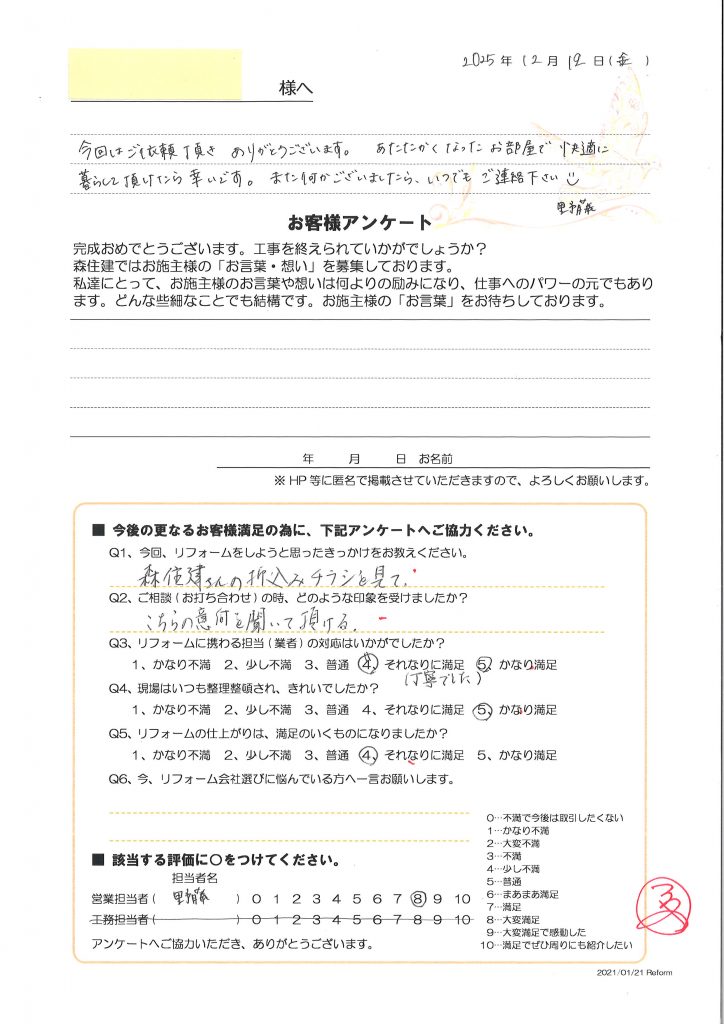 2025年 12月 12日(金)
様へ
今回はご依頼頂き ありがとうございます。 あたたかくなった お部屋で 快適に
暮らして頂けたら幸いです。 また何かございましたら、いつでも ご連絡下さい
お客様アンケート
完成おめでとうございます。工事を終えられていかがでしょうか？
森住建ではお施主様の「お言葉・想い」を募集しております。
私達にとって、お施主様のお言葉や想いは何よりの励みになり、仕事へのパワーの元でもあり
ます。どんな些細なことでも結構です。お施主様の「お言葉」をお待ちしております。
年 月 日 お名前
※HP等に匿名で掲載させていただきますので、よろしくお願いします。
■ 今後の更なるお客様満足の為に、下記アンケートへご協力ください。
Q1、今回、リフォームをしようと思ったきっかけをお教えください。
森住建さんの折込みチラシを見て.
Q2、ご相談(お打ち合わせ)の時、どのような印象を受けましたか？
こちらの意向を聞いて頂ける.
Q3、リフォームに携わる担当(業者)の対応はいかがでしたか？
1、かなり不満 2、少し不満 3、普通 4、それなりに満足 5、かなり満足
(丁寧でした)
Q4、現場はいつも整理整頓され、きれいでしたか？
1、かなり不満 2、少し不満 3、普通 4、それなりに満足 5、かなり満足
Q5、リフォームの仕上がりは、満足のいくものになりましたか？
1、かなり不満 2、少し不満 3、普通 4、それなりに満足 5、かなり満足
Q6、今、リフォーム会社選びに悩んでいる方へ一言お願いします。
0…不満で今後は取引したくない
1…かなり不満
2…大変不満
3…不満
4…少し不満
5…普通
6…まあまあ満足
7…満足
8…大変満足
9…大変満足で感動した
10…満足でぜひ周りにも紹介したい
■ 該当する評価に○をつけてください。
担当者名
営業担当者( ) 0 1 2 3 4 5 6 7 8 9 10
工務担当者( ) 0 1 2 3 4 5 6 7 8 9 10
アンケートへご協力いただき、ありがとうございます。
2021/01/21 Reform